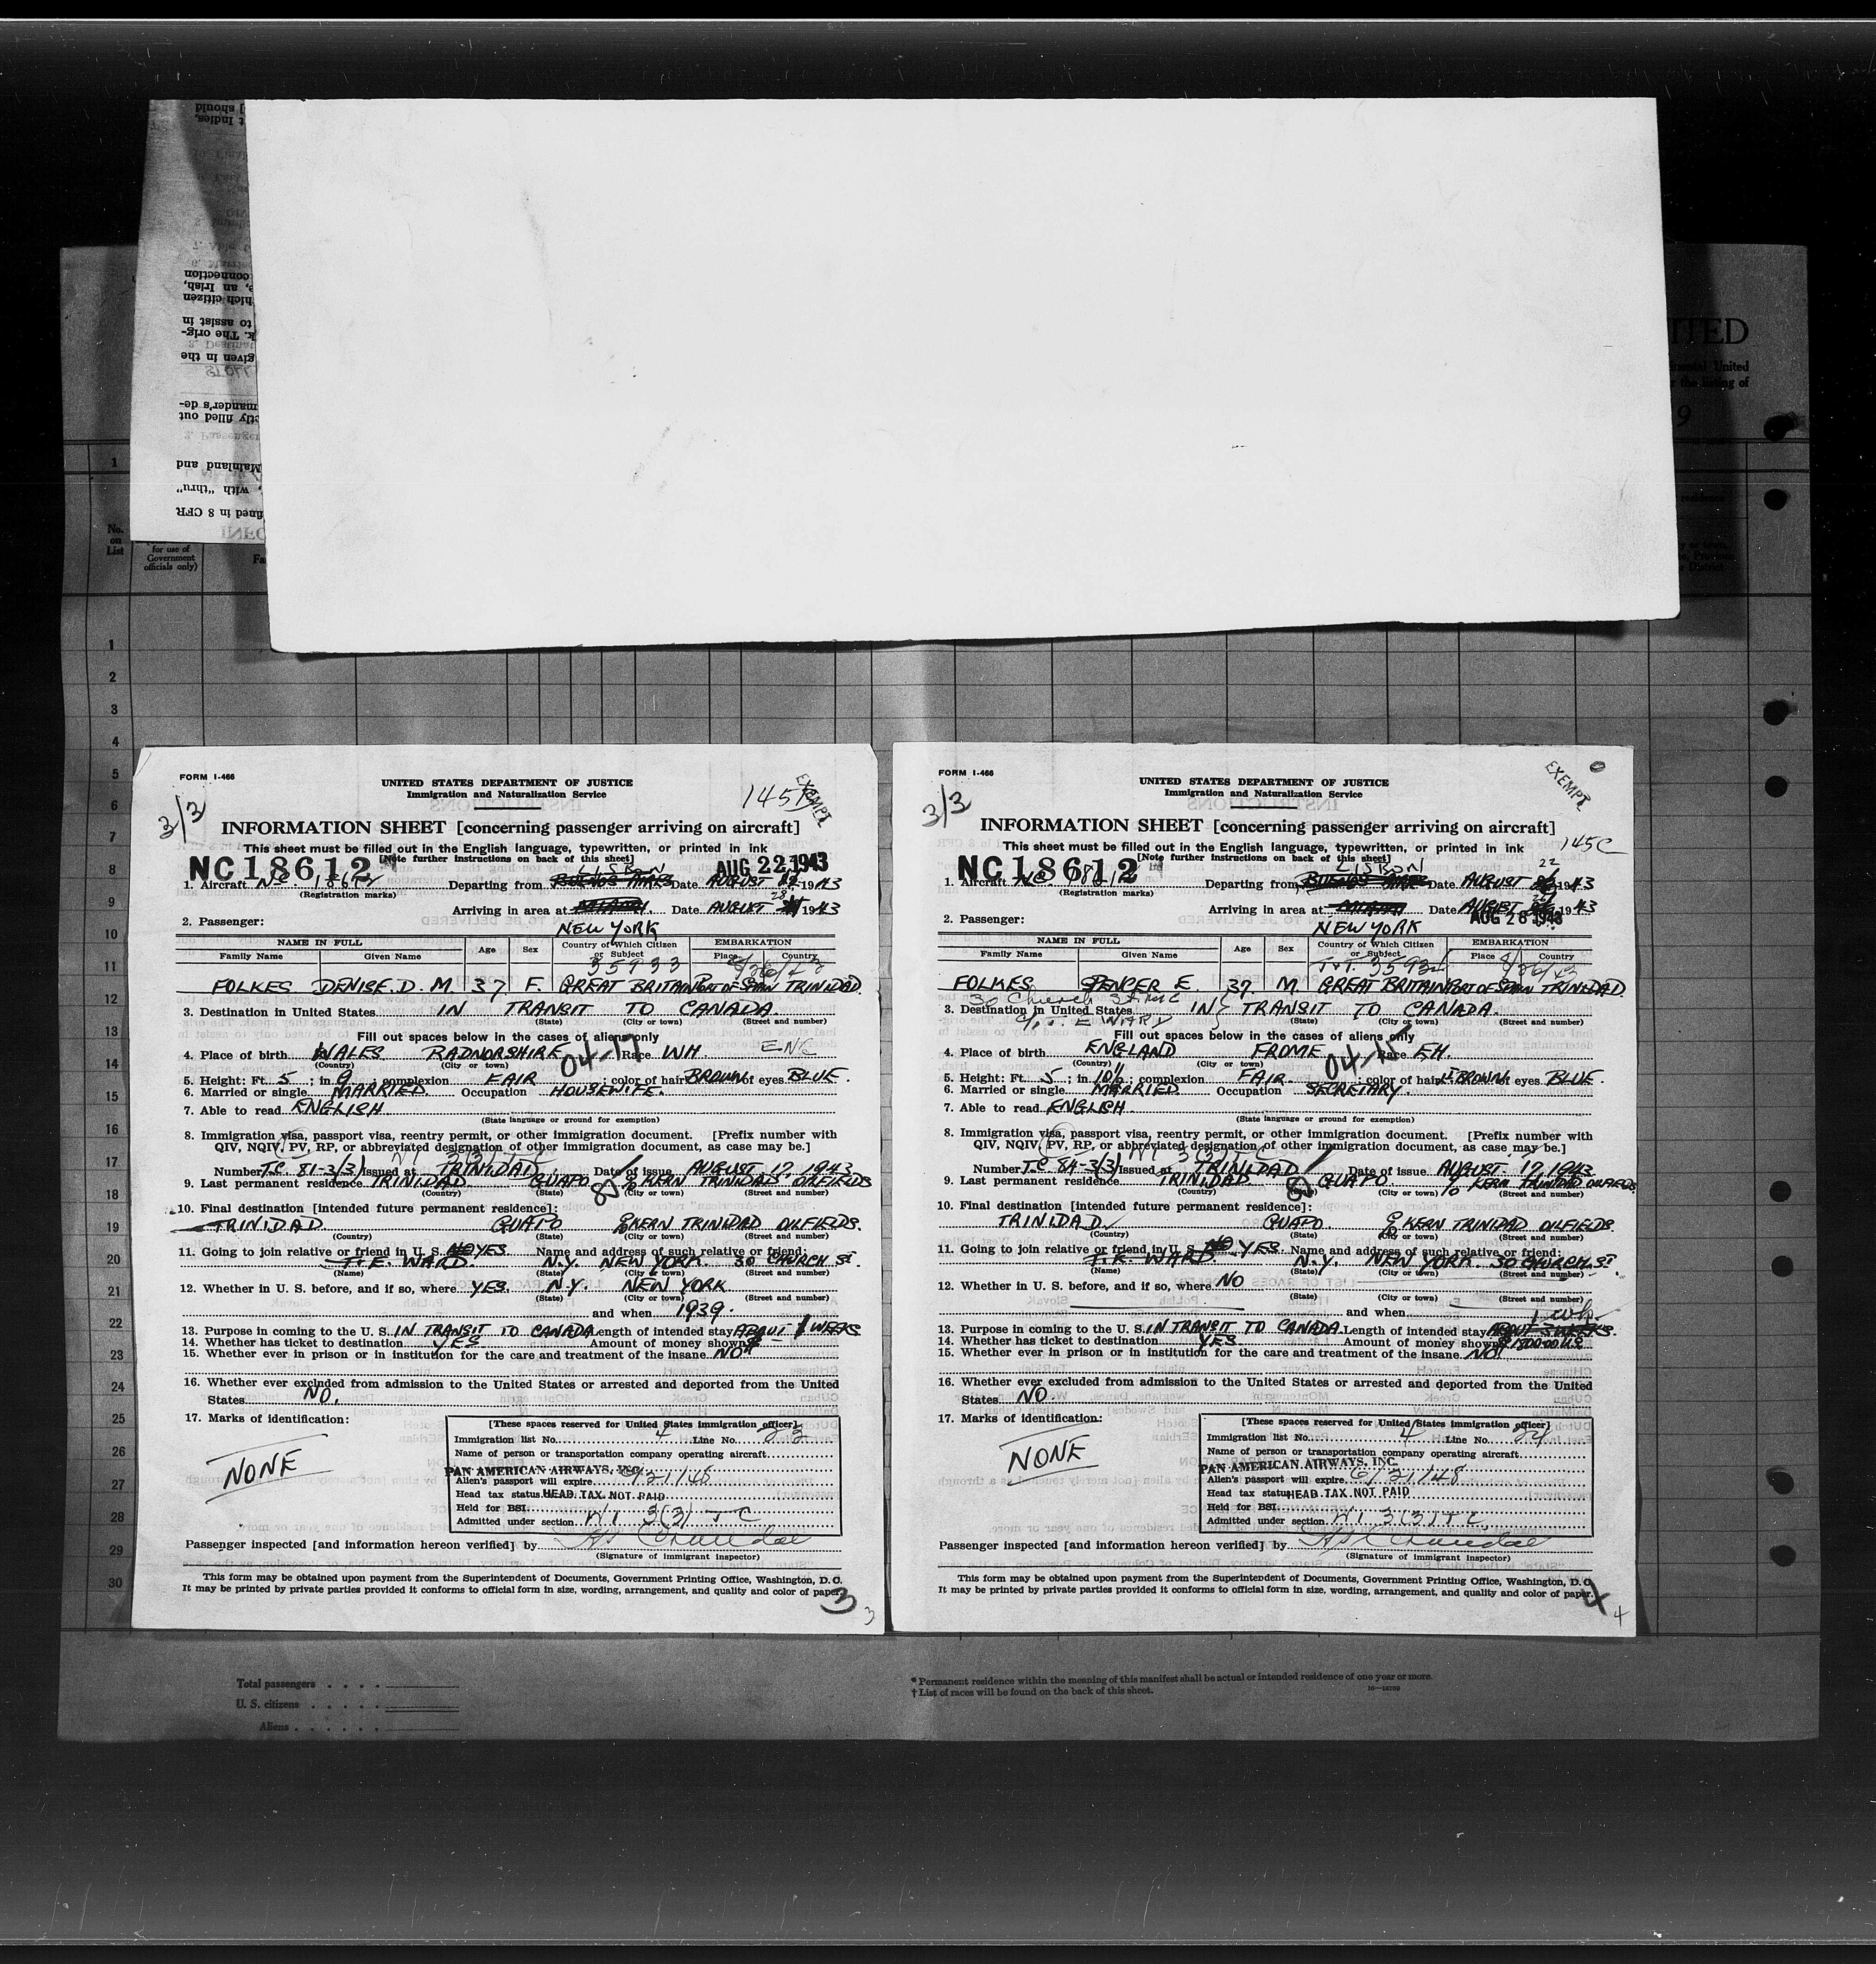 FORM I-466
UNITED STATES DEPARTMENT OF JUSTICE
Immigration and Naturalization Service
EXEMPT
3/3
INFORMATION SHEET [concerning passenger arriving on aircraft]
This sheet must be filled out in the English language, typewritten, or printed in ink
[Note further instructions on back of this sheet]
NC18612
LISBON
AUG 22 1943
1. Aircraft NC 18612 Departing from BUENOS AIRES Date AUGUST 1943
(Registration marks)
Arriving in area at MIAMI Date AUGUST 28 1943
2. Passenger:
NEW YORK
NAME IN FULL Age Sex Country of Which Citizen or Subject EMBARKATION
Family Name Given Name Place Country
35933
FOLKES DENISE. D. M. 37 F. GREAT BRITAIN PORT OF SPAIN TRINIDAD.
3. Destination in United States IN TRANSIT TO CANADA.
(State) (City or town) (Street and number)
Fill out spaces below in the cases of aliens only
4. Place of birth WALES RADNORSHIRE 04-17 Race WH ENG
(Country) (City or town)
5. Height: Ft. 5 ; in 9 ; complexion FAIR ; color of hair BROWN of eyes BLUE.
6. Married or single MARRIED. Occupation HOUSEWIFE.
7. Able to read ENGLISH.
(State language or ground for exemption)
8. Immigration visa, passport visa, reentry permit, or other immigration document. [Prefix number with
QIV, NQIV, PV, RP, or abbreviated designation of other immigration document, as case may be.]
Number T.C 81-3(3) Issued at TRINIDAD Date of issue AUGUST 17, 1943
9. Last permanent residence TRINIDAD GUAPO % KERN TRINIDAD OILFIELDS
(Country) (State) (City or town) (Street and number)
10. Final destination [intended future permanent residence]:
TRINIDAD GUAPO % KERN TRINIDAD OILFIELDS.
(Country) (State) (City or town) (Street and number)
11. Going to join relative or friend in U. S. NO YES. Name and address of such relative or friend:
T. E. WARD. N.Y. NEW YORK. 30 CHURCH ST
(Name) (State) (City or town) (Street and number)
12. Whether in U. S. before, and if so, where YES. N.Y. NEW YORK
(State) (City or town) (Street and number)
and when 1939.
13. Purpose in coming to the U. S. IN TRANSIT TO CANADA Length of intended stay ABOUT 1 WEEKS
14. Whether has ticket to destination YES Amount of money shown $
15. Whether ever in prison or in institution for the care and treatment of the insane NO
16. Whether ever excluded from admission to the United States or arrested and deported from the United
States NO.
17. Marks of identification:
NONE
[These spaces reserved for United States immigration officer]
Immigration list No. 4 Line No. 23
Name of person or transportation company operating aircraft
PAN AMERICAN AIRWAYS, INC.
Alien's passport will expire 6/21/48
Head tax status HEAD TAX NOT PAID
Held for BSI
Admitted under section W1 3(3) TC
Passenger inspected [and information hereon verified] by
(Signature of immigrant inspector)
This form may be obtained upon payment from the Superintendent of Documents, Government Printing Office, Washington, D. C.
It may be printed by private parties provided it conforms to official form in size, wording, arrangement, and quality and color of paper.
3
3
FORM I-466
UNITED STATES DEPARTMENT OF JUSTICE
Immigration and Naturalization Service
EXEMPT
3/3
INFORMATION SHEET [concerning passenger arriving on aircraft]
This sheet must be filled out in the English language, typewritten, or printed in ink
145C
[Note further instructions on back of this sheet]
NC18612
LISBON
22
1. Aircraft NC 18612 Departing from BUENOS AIRES Date AUGUST 1943
(Registration marks)
Arriving in area at MIAMI Date AUGUST 1943
AUG 28 1943
2. Passenger:
NEW YORK
NAME IN FULL Age Sex Country of Which Citizen or Subject EMBARKATION
Family Name Given Name Place Country
35934
FOLKES SPENCER E. 37. M. GREAT BRITAIN PORT OF SPAIN TRINIDAD.
30 Church Street
3. Destination in United States IN TRANSIT TO CANADA.
c/o T. E WARD
(State) (City or town) (Street and number)
Fill out spaces below in the cases of aliens only
4. Place of birth ENGLAND FROME Race EH.
(Country) (City or town)
5. Height: Ft. 5 ; in 10½ ; complexion FAIR. ; color of hair BROWN of eyes BLUE.
6. Married or single MARRIED. Occupation SECRETARY.
7. Able to read ENGLISH.
(State language or ground for exemption)
8. Immigration visa, passport visa, reentry permit, or other immigration document. [Prefix number with
QIV, NQIV, PV, RP, or abbreviated designation of other immigration document, as case may be.]
Number T.C 84-3(3) Issued at TRINIDAD Date of issue AUGUST 17, 1943
9. Last permanent residence TRINIDAD GUAPO % KERN TRINIDAD OILFIELDS.
(Country) (State) (City or town) (Street and number)
10. Final destination [intended future permanent residence]:
TRINIDAD GUAPO. % KERN TRINIDAD OILFIELDS
(Country) (State) (City or town) (Street and number)
11. Going to join relative or friend in U. S. NO YES. Name and address of such relative or friend:
T. E. WARD. N.Y. NEW YORK 30 CHURCH. ST
(Name) (State) (City or town) (Street and number)
12. Whether in U. S. before, and if so, where NO
(State) (City or town) (Street and number)
and when
1 wk.
13. Purpose in coming to the U. S. IN TRANSIT TO CANADA. Length of intended stay ABOUT 3 WEEKS.
14. Whether has ticket to destination YES Amount of money shown
15. Whether ever in prison or in institution for the care and treatment of the insane NO
16. Whether ever excluded from admission to the United States or arrested and deported from the United
States NO.
17. Marks of identification:
NONE
[These spaces reserved for United States immigration officer]
Immigration list No. 4 Line No. 24
Name of person or transportation company operating aircraft
PAN AMERICAN AIRWAYS, INC.
Alien's passport will expire 6/21/48
Head tax status HEAD TAX NOT PAID
Held for BSI
Admitted under section W1 3(3) TC
Passenger inspected [and information hereon verified] by
(Signature of immigrant inspector)
This form may be obtained upon payment from the Superintendent of Documents, Government Printing Office, Washington, D. C.
It may be printed by private parties provided it conforms to official form in size, wording, arrangement, and quality and color of paper.
4
4
Total passengers
U. S. citizens
Aliens
* Permanent residence within the meaning of this manifest shall be actual or intended residence of one year or more.
† List of races will be found on the back of this sheet.